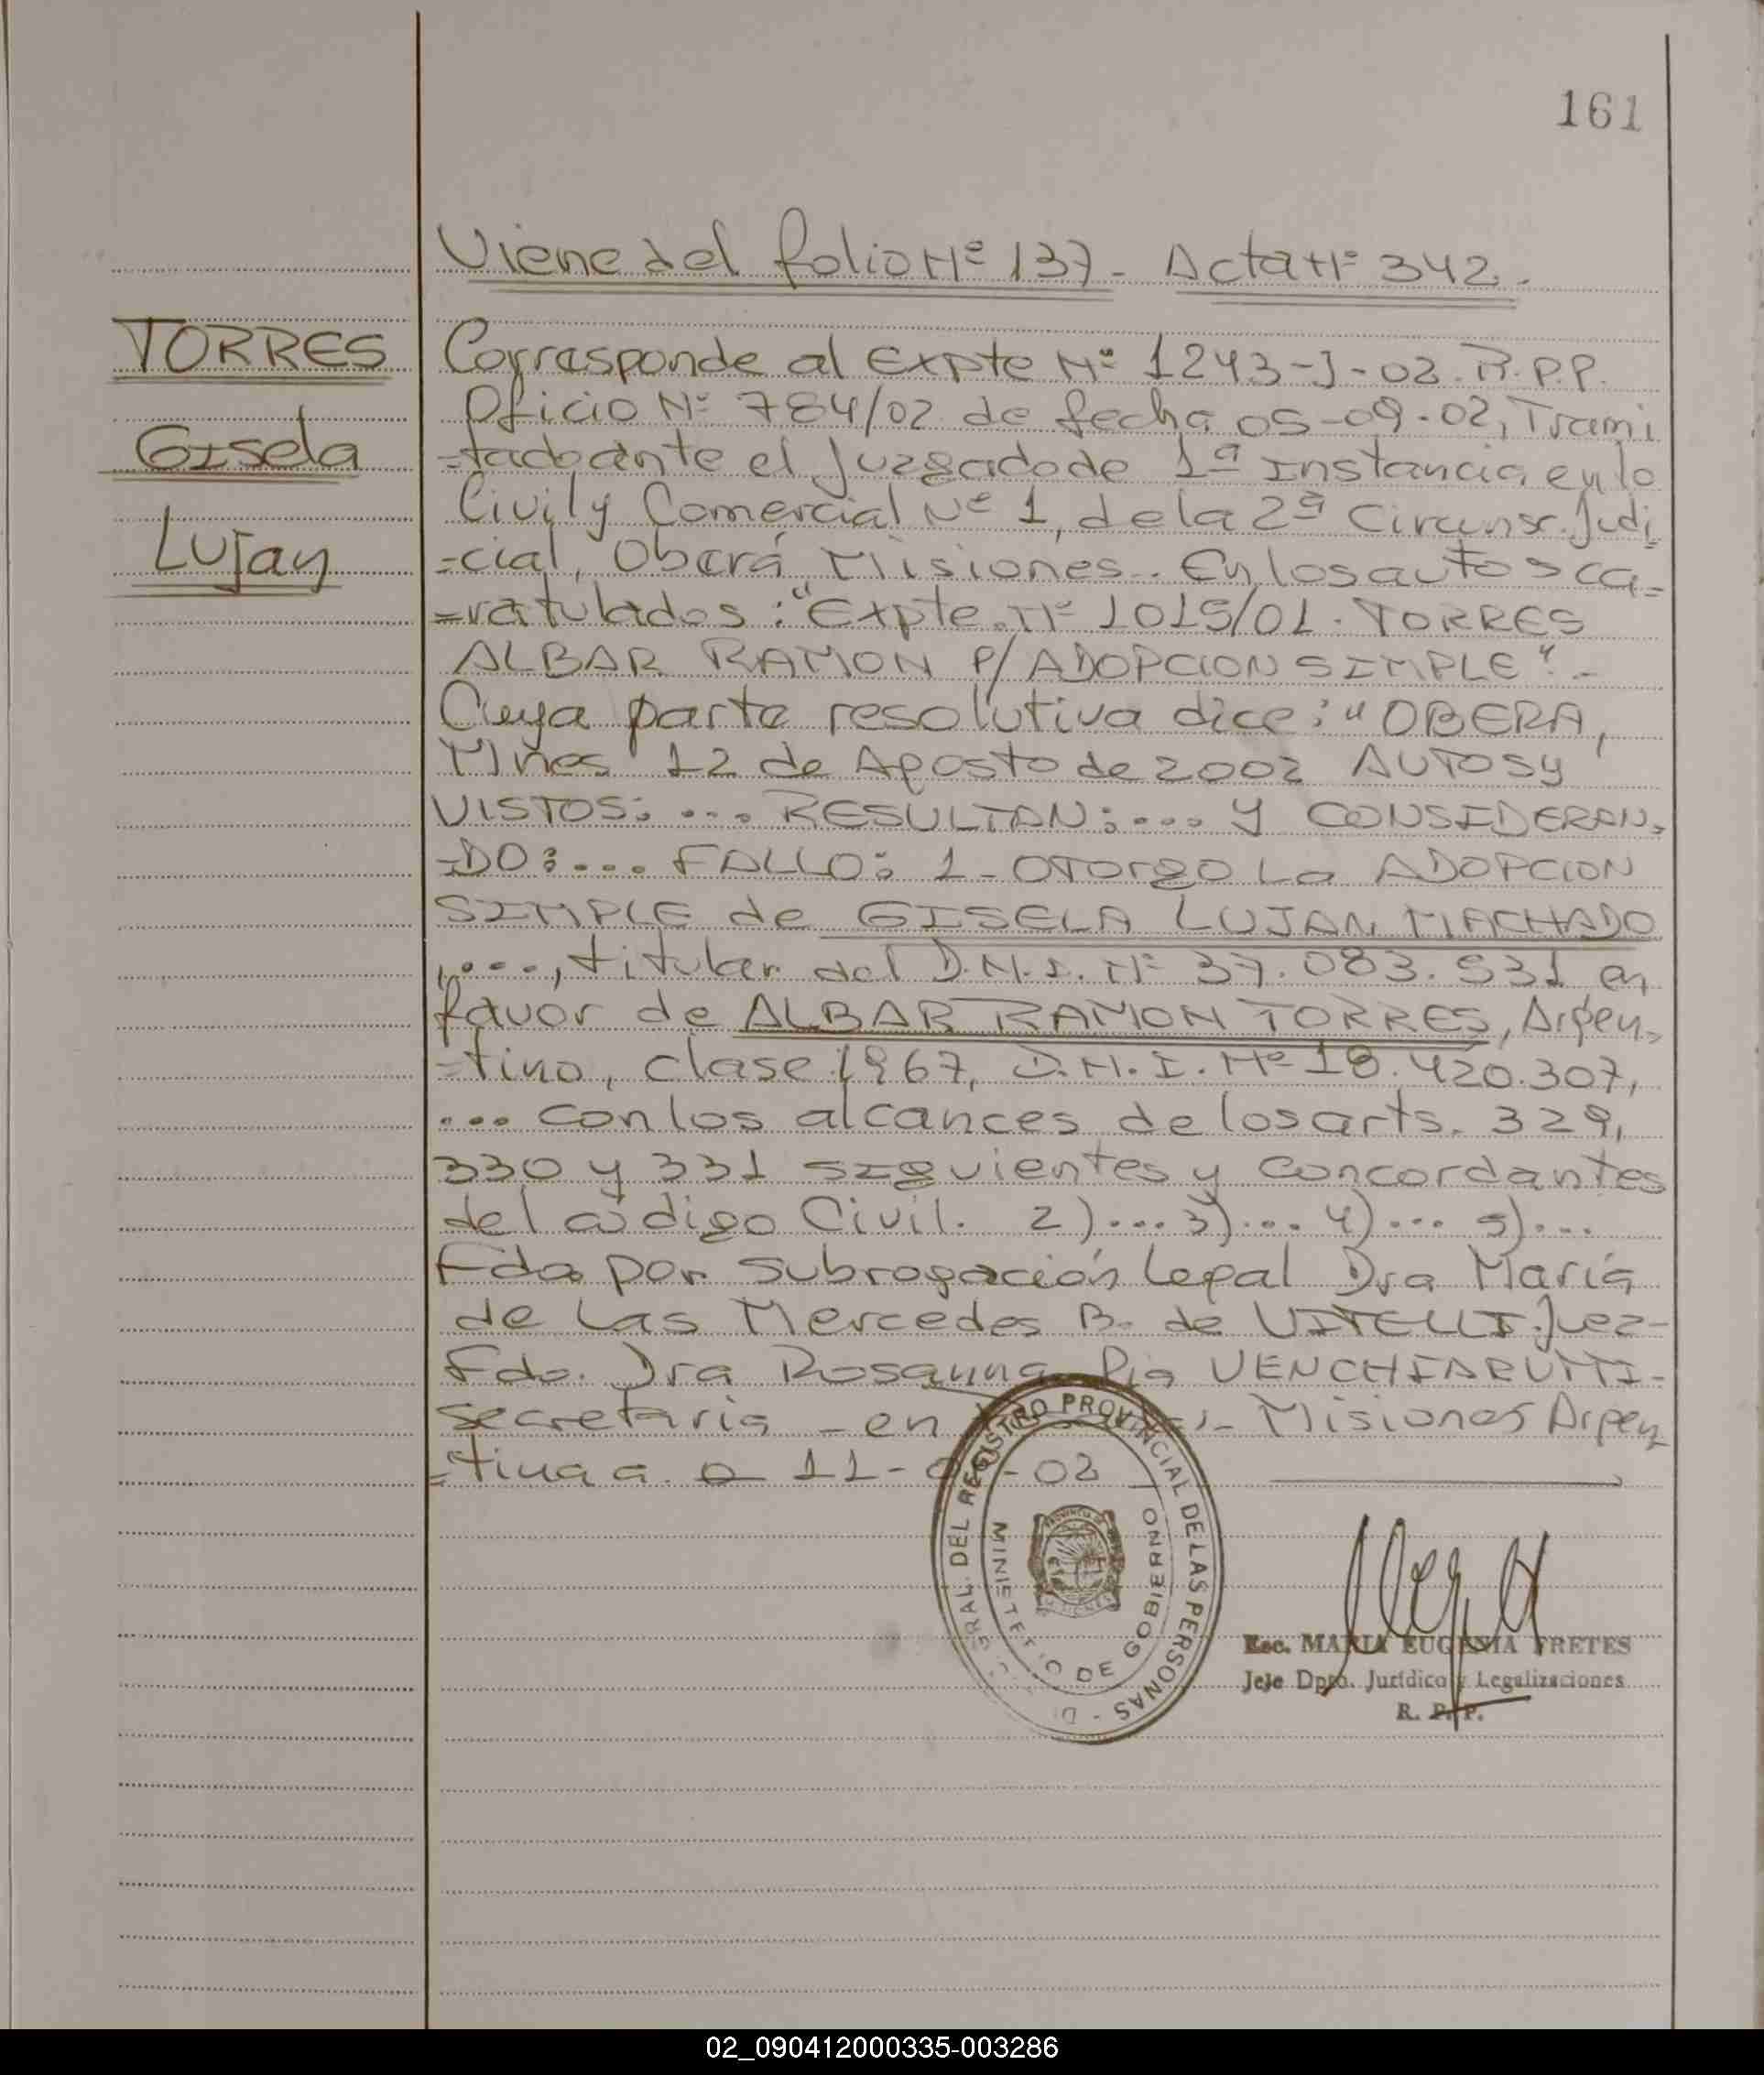 161
Viene del folio Nº 137 - Acta Nº 342.-
TORRES
Gisela
Lujan
Corresponde al Expte Nº 1243-J-02. R.P.P.
Oficio Nº 784/02 de fecha 05-09-02, Trami
=tado ante el Juzgado de 1ª Instancia en lo
Civil y Comercial Nº 1, de la 2ª Circunsc. Judi
=cial, Oberá, Misiones.. En los autos ca-
=ratulados: "Expte. Nº 1015/01. TORRES
ALBAR RAMON P/ ADOPCION SIMPLE".-
Cuya parte resolutiva dice: "OBERA,
Mnes 12 de Agosto de 2002 AUTOS y
VISTOS: ... RESULTAN: ... y CONSIDERAN=
=DO: ... FALLO: 1- OTorgo La ADOPCION
SIMPLE de GISELA LUJAN MACHADO
,...., titular del D.N.I. Nº 37.083.531 en
favor de ALBAR RAMON TORRES, Argen=
=tino, clase 1967, D.N.I. Nº 18.420.307,
... con los alcances de los arts. 329,
330 y 331 siguientes y concordantes
del código Civil. 2)... 3)... 4)... 5)...
Fdo por subrogación Legal Dra María
de Las Mercedes B. de VITELLI. Juez-
Fdo. Dra Rosanna Pia VENCHIARUTTI-
secretaria - en - Misiones Argen
=tina a 11- -02
DEL REGISTRO PROVINCIAL DE LAS PERSONAS
MINISTERIO DE GOBIERNO
Esc. MARIA EUGENIA FRETES
Jefe Dpto. Jurídico y Legalizaciones
R. P. P.
02_090412000335-003286